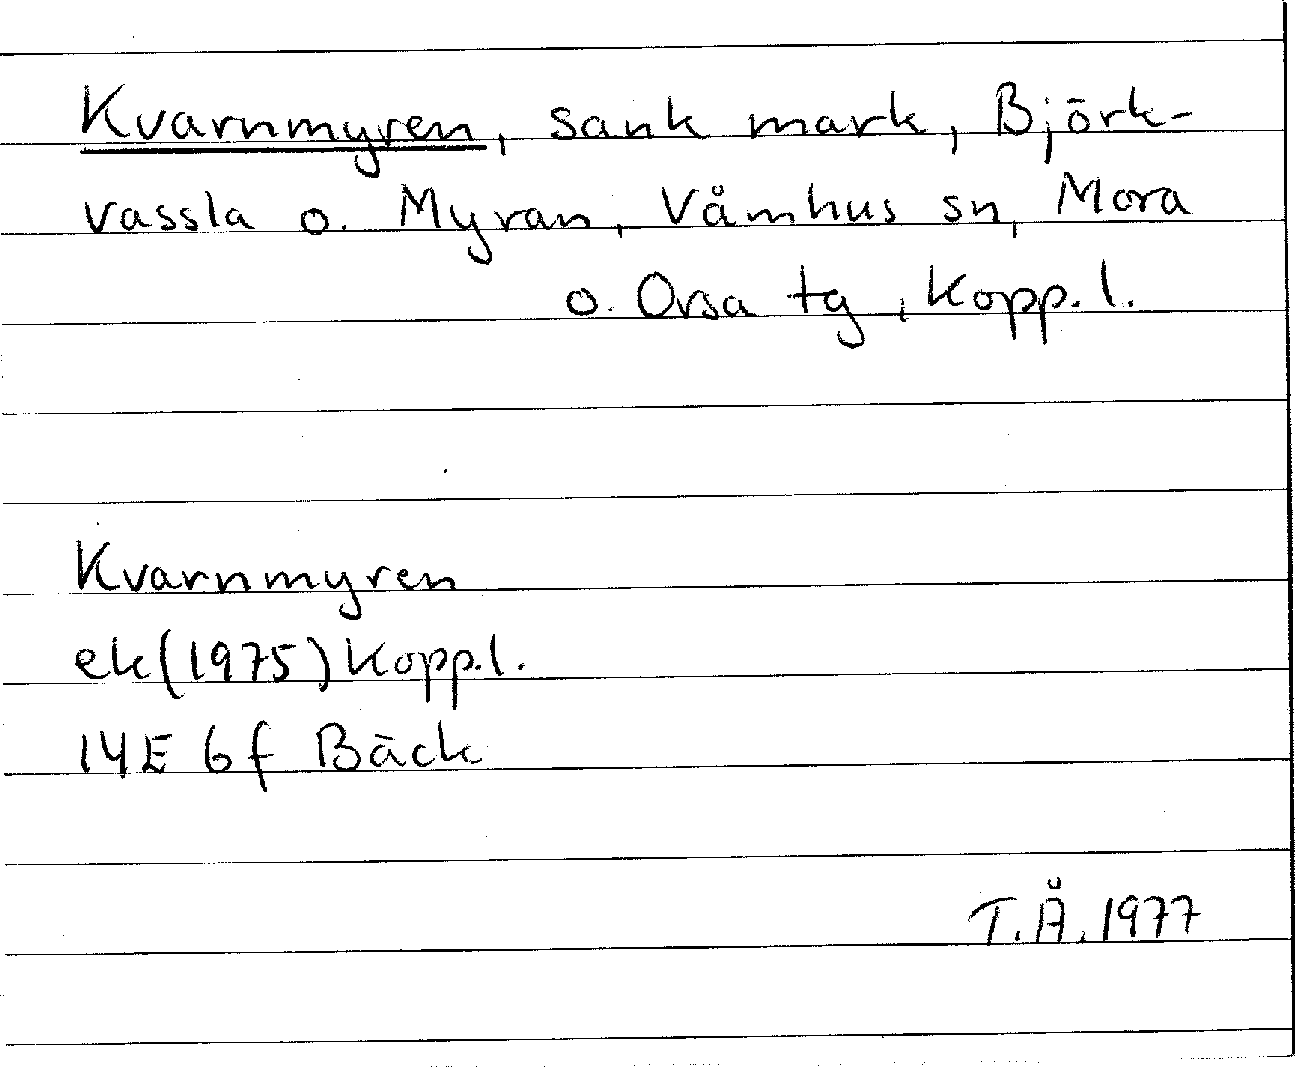 Kvarnmyren, sank mark, Björk-
vassla o. Myran, Våmhus sn, Mora
o. Orsa tg, Kopp. l.
Kvarnmyren
ek (1975) Kopp.l.
14E 6f Bäck
T.Å. 1977